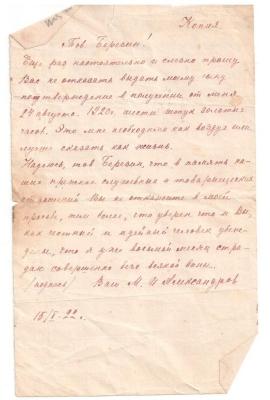 Копия
Тов Березин!
Еще раз настоятельно и слезно прошу
Вас не отказать выдать моему сыну
подтверждение в получении от меня
24 августа 1920г. шести штук золотых
часов. Это мне необходимо как воздух или
лучше сказать как жизнь.
Надеюсь, тов Березин, что в память на-
ших прежних служебных и товарищеских
отношений Вы не откажите в моей
просьбе, тем более, что уверен что и Вы,
как честный и идейный человек убеж-
дены, что я уже восьмой месяц стра-
даю совершенно вне всякой вины..
(подпись) Ваш М. И Александров
15/I-22 г.